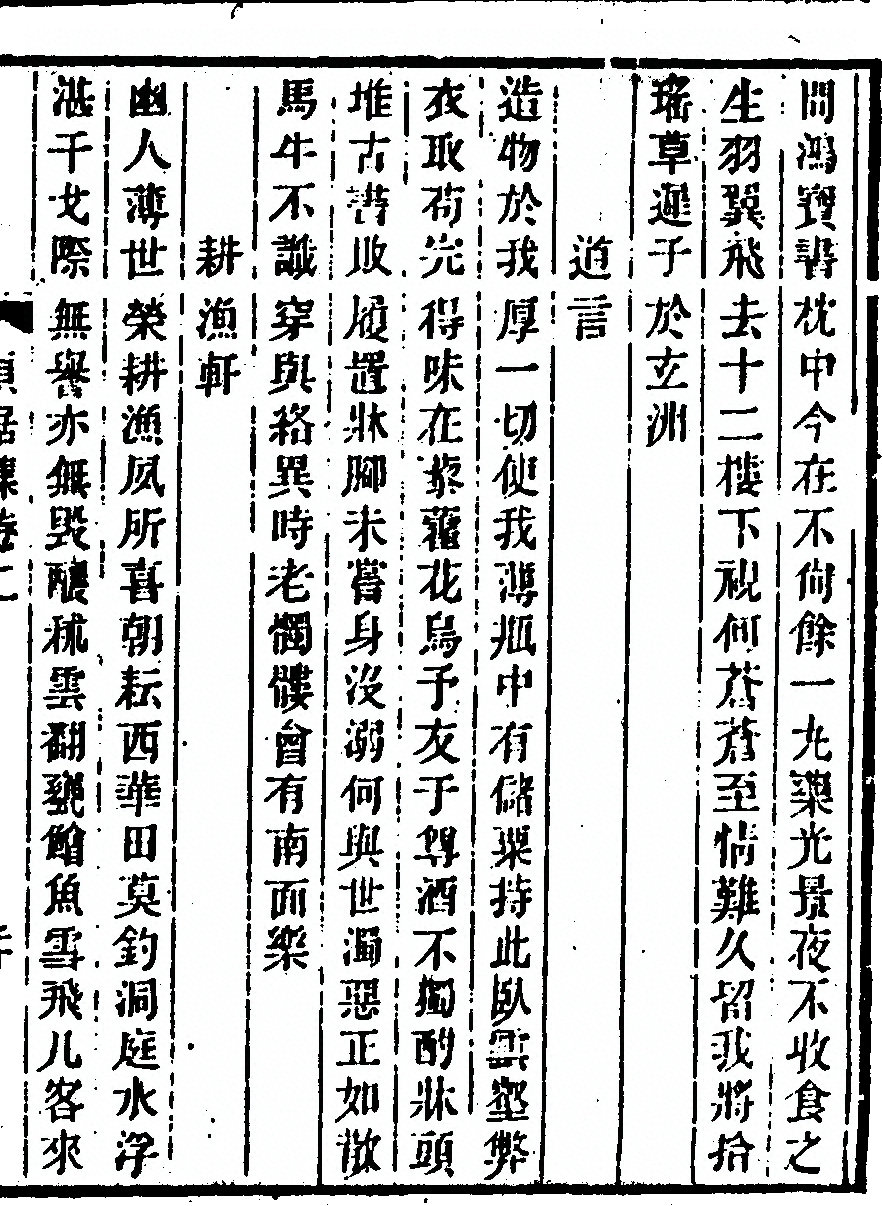 問鴻寶書枕中今在不何餘一丸藥光景夜不收食之
生羽翼飛去十二樓下視何蒼蒼至情難久留我將拾
瑤草遲子於玄洲
道言
造物於我厚一切使我薄瓶中有儲粟持此臥雲壑弊
衣取苟完得味在藜藿花鳥予友于尊酒不獨酌牀頭
堆古書敗履置牀腳未嘗身沒溺何與世濁惡正如散
馬牛不議穿與絡異時老髑髏曾有南面樂
耕漁軒
幽人薄世榮耕漁夙所喜朝耘西華田莫釣洞庭水浮
湛干戈際無譽亦無毀釀秫雲翻甕鱠魚雪飛几客來